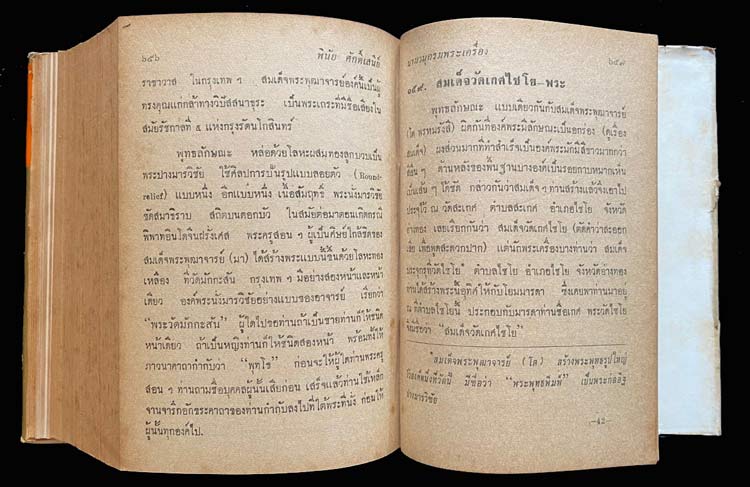 ๖๕๖ พินัย ศักดิ์เสนีย์
ราชาวาส ในกรุงเทพ ฯ สมเด็จพระพุฒาจารย์องค์นี้เป็นผู้
ทรงคุณแก่กล้าทางวิปัสสนาธุระ เป็นพระเถระที่มีชื่อเสียงใน
สมัยรัชกาลที่ ๕ แห่งกรุงรัตนโกสินทร์
พุทธลักษณะ หล่อด้วยโลหะผสมทองลูกบวบเป็น
พระปางมารวิชัย ใช้ศิลปการปั้นรูปแบบลอยตัว (Round-
relief) แบบหนึ่ง อีกแบบหนึ่ง เนื้อสัมฤทธิ์ พระนั่งมารวิชัย
ขัดสมาธิราบ สถิตบนดอกบัว ในสมัยต่อมาตอนเกิดกรณี
พิพาทอินโดจีนฝรั่งเศส พระครูสอน ๆ ผู้เป็นศิษย์ใกล้ชิดของ
สมเด็จพระพุฒาจารย์ (มา) ได้สร้างพระแบบนี้ขึ้นด้วยโลหะทอง
เหลือง ที่วัดมักกะสัน กรุงเทพ ๆ มีอย่างสองหน้าและหน้า
เดียว องค์พระนั่งมารวิชัยอย่างแบบของอาจารย์ เรียกว่า
“พระวัดมักกะสัน” ผู้ใดไปขอท่านถ้าเป็นชายท่านก็ให้ชนิด
หน้าเดียว ถ้าเป็นหญิงท่านก็ให้ชนิดสองหน้า พร้อมทั้งให้
ภาวนาคาถากำกับว่า “พุทโธ” ก่อนจะให้ผู้ใดท่านพระครู
สอน ๆ ท่านถามชื่อบุคคลผู้นั้นเสียก่อน เสร็จแล้วท่านใช้เหล็ก
จานจารึกอักขระคาถาของท่านกำกับลงไปที่ใต้พระที่นั่ง ก่อนให้
ผู้นั้นทุกองค์ไป.
นามานุกรมพระเครื่อง ๖๕๗
๑๕๙. สมเด็จวัดเกศไชโย–พระ
พุทธลักษณะ แบบเดียวกันกับสมเด็จพระพุฒาจารย์
(โต พรหมรังสี) ผิดกันที่องค์พระมีลักษณะเป็นอกร่อง (ดูเรื่อง
สมเด็จ) ผงส่วนมากที่ทำสำเร็จเป็นองค์พระมักมีสีขาวมากกว่า
สีอื่น ๆ ด้านหลังของพื้นฐานบางองค์เป็นรอยกาบหมากเห็น
เป็นเส้น ๆ ได้ชัด กล่าวกันว่าสมเด็จ ๆ ท่านสร้างแล้วจึงเอาไป
ประจุไว้ ณ วัดสะเกศ ตำบลสะเกศ อำเภอไชโย จังหวัด
อ่างทอง เลยเรียกกันว่า สมเด็จวัดเกศไชโย (ตัดคำว่าสะออก
เสีย เพื่อพูดสะดวกปาก) แต่นักพระเครื่องบางท่านว่า สมเด็จ
ประจุกรุที่วัดไชโย* ตำบลไชโย อำเภอไชโย จังหวัดอ่างทอง
ท่านได้สร้างพระนี้อุทิศให้กับโยมมารดา ซึ่งเคยพาท่านมาอยู่
ณ ที่ตำบลไชโยนี้ ประกอบกับมารดาท่านชื่อเกศ พระวัดไชโย
จึงมีชื่อว่า “สมเด็จวัดเกศไชโย”
*สมเด็จพระพุฒาจารย์ (โต) สร้างพระพุทธรูปใหญ่
มีชื่อว่า “พระพุทธพิมพ์” เป็นพระก่ออิฐ
ปางมารวิชัย
–42–